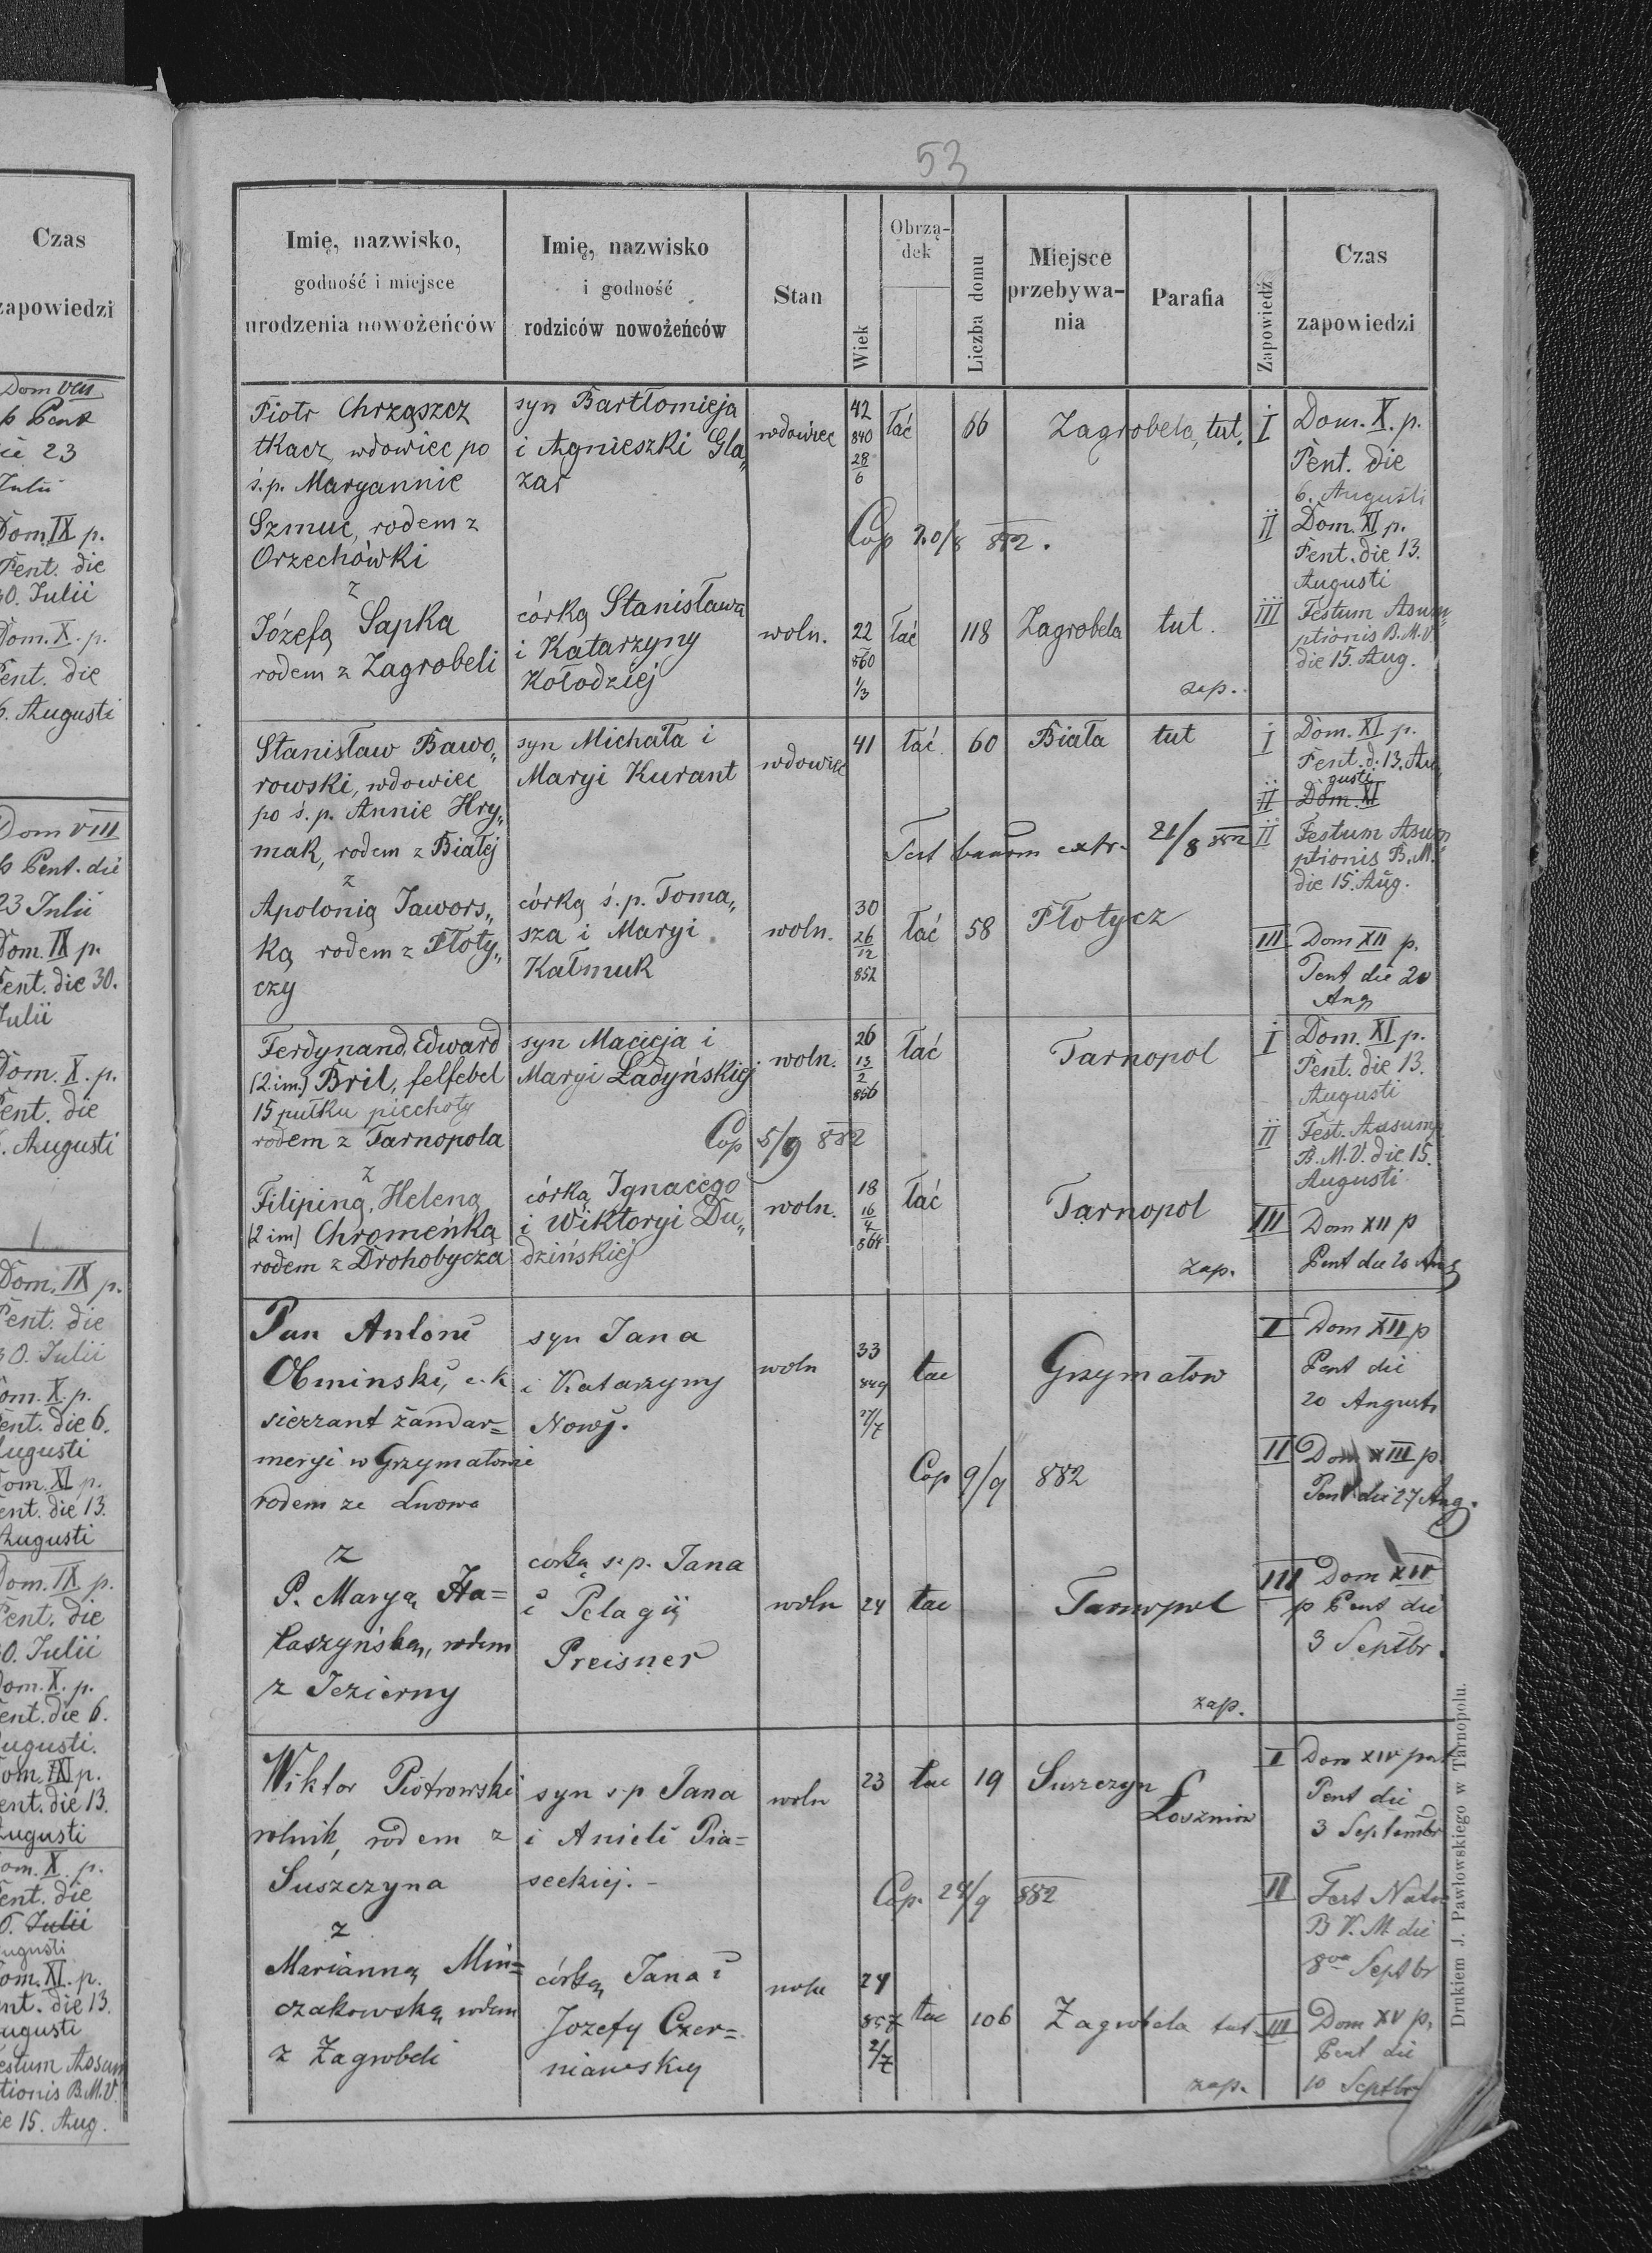 Czas
zapowiedzi
Dom VIII
p Pent
die 23
Julii
Dom. IX p.
Pent. die
30. Julii
Dom. X. p.
Pent. die
6. Augusti
Dom VIII
p Pent. die
23 Julii
Dom. IX p.
Pent. die 30.
Julii
Dom. X. p.
Pent. die
6. Augusti
Dom. IX p.
Pent. die
30. Julii
Dom. X. p.
Pent. die 6.
Augusti
Dom. XI p.
Pent. die 13.
Augusti
Dom. IX p.
Pent. die
30. Julii
Dom. X. p.
Pent. die 6.
Augusti.
Dom. XI p.
Pent. die 13.
Augusti
Dom. X. p.
Pent. die
6. Julii
Augusti
Dom. XI. p.
Pent. die 13.
Augusti
Festum Assum
ptionis B.M.V.
die 15. Aug.
53
Imię, nazwisko,
godność i miejsce
urodzenia nowożeńców
Imię, nazwisko
i godność
rodziców nowożeńców
Stan
Wiek
Obrzą-
dek
Liczba domu
Miejsce
przebywa-
nia
Parafia
Zapowiedź
Czas
zapowiedzi
Piotr Chrząszcz
tkacz, wdowiec po
ś.p. Maryannie
Szmuc, rodem z
Orzechówki
syn Bartłomieja
i Agnieszki Gla„
zar
wdowiec
42
840
28
6
łać
66
Zagrobela, tut.
Cop 20/8 882.
I Dom. X. p.
Pent. die
6. Augusti
II Dom. XI p.
Pent. die 13.
Augusti
z
Józefą Sapka
rodem z Zagrobeli
córką Stanisława
i Katarzyny
Kołodziej
woln.
22
860
1/3
łać
118
Zagrobela
tut.
zap.
III Festum Asum„
ptionis B.M.V.
die 15. Aug.
Stanisław Bawo„
rowski, wdowiec
po ś.p. Annie Hry„
mak, rodem z Białej
syn Michała i
Maryi Kurant
wdowiec
41
łać
60
Biała
tut
Test bannm extr. 21/8 882
I Dom. XI p.
Pent. d. 13. Au„
gusti
II Dom. XI
II Festum Asum
ptionis B.M.
die 15. Aug.
z
Apolonią Jawors„
ką rodem z Płoty„
czy
córką ś.p. Toma„
sza i Maryi
Kałmuk
woln.
30
26
12
852
łać
58
Płotycz
III Dom XII p.
Pent die 20
Aug
Ferdynand, Edward
(2. im.) Bril, felfebel
15 pułku piechoty
rodem z Tarnopola
syn Macieja i
Maryi Ładyńskiej
woln.
26
13
2
856
łać
Tarnopol
Cop 5/9 882
I Dom. XI p.
Pent. die 13.
Augusti
II Fest. Assump.
B.M.V. die 15.
Augusti
z
Filipiną, Heleną
(2 im) Chromeńką
rodem z Drohobycza
córką Ignacego
i Wiktoryi Du„
dzińskiej
woln.
18
16
4
864
łać
Tarnopol
zap.
III Dom XII p
Pent die 20 Aug
Pan Antoni
Obminski, c.k
sierzant żandar=
meryi w Grzymałowie
rodem ze Lwowa
syn Jana
i Katarzyny
Nowj.
woln
33
849
17/7
łac
Grzymałow
Cop 9/9 882
I Dom XII p
Pent die
20 Augusti
II Dom XIII p.
Pent die 27 Aug.
z
P. Maryą Ha=
łaszyńską, rodem
z Jezierny
córką s.p. Jana
i Pelagij
Preisner
woln
24
łac
Tarnopol
zap.
III Dom XIV
p Pent die
3 Septbr.
Wiktor Piotrowski
rolnik, rodem z
Suszczyna
syn s.p Jana
i Anieli Pia=
seckiej.-
woln
23
łac
19
Suszczyn
Łoszniow
Cop. 24/9 882
I Dom XIV post
Pent die
3 Septembr
II Fest Nativ
B V. M die
8va Septbr
z
Marianną Min=
czakowską, rodem
z Zagrobeli
córką Jana i
Jozefy Czer=
niawskiej
woln
24
857
2/7
łac
106
Zagrobela
tut.
zap.
III Dom XV p.
Pent die
10 Septbr
Drukiem J. Pawłowskiego w Tarnopolu.